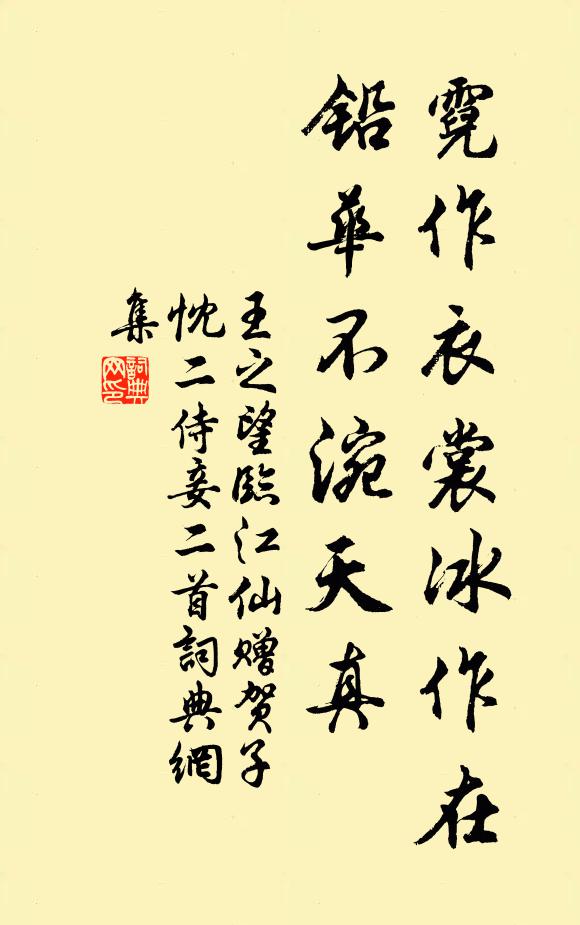 霓作衣裳冰作在
鉛華不涴天真
王之望臨江仙贈賀子
忱二侍妾二首詞典網
集
詞典
网印